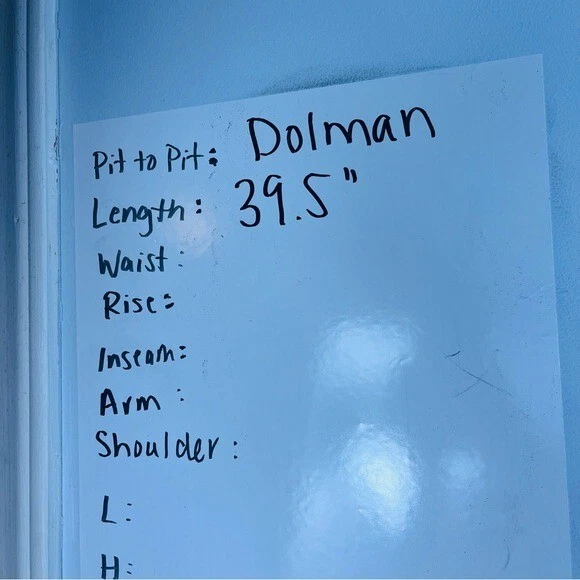 Pit to Pit: Dolman
Length: 39.5"
Waist:
Rise:
Inseam:
Arm:
Shoulder:
L:
H: